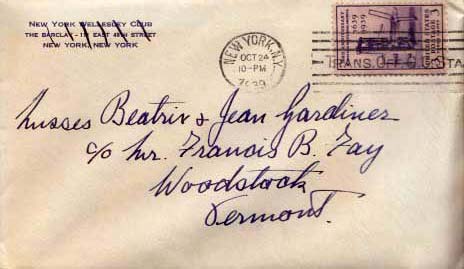 NEW YORK WELLESLEY CLUB
THE BARCLAY - 111 EAST 48TH STREET
NEW YORK, NEW YORK
NEW YORK, N.Y.
OCT 24
10-PM
1939
1639 1939
3
TRANS. OFF. G.C. STA
Misses Beatrix & Jean Gardiner
c/o Mr. Francis B. Fay
Woodstock
Vermont.